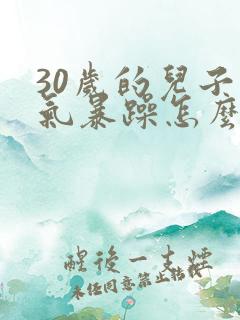 30歲的兒子
氣暴躁怎麼
醒後一支煙
未经同意禁止转载